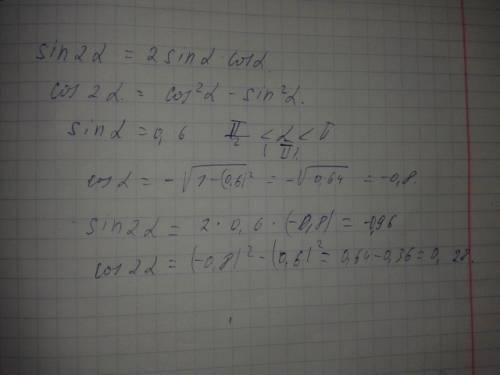 sin2α = 2sinα cosα.
cos2α. = cos²α - sin²α.
sinα = 0,6 π/2 < α < π
( II ).
cosα = -√1-(0,6)² = -√0,64 = -0,8.
sin2α = 2·0,6·(-0,8) = -0,96
cos2α = (-0,8)² - (0,6)² = 0,64-0,36 = 0,28.